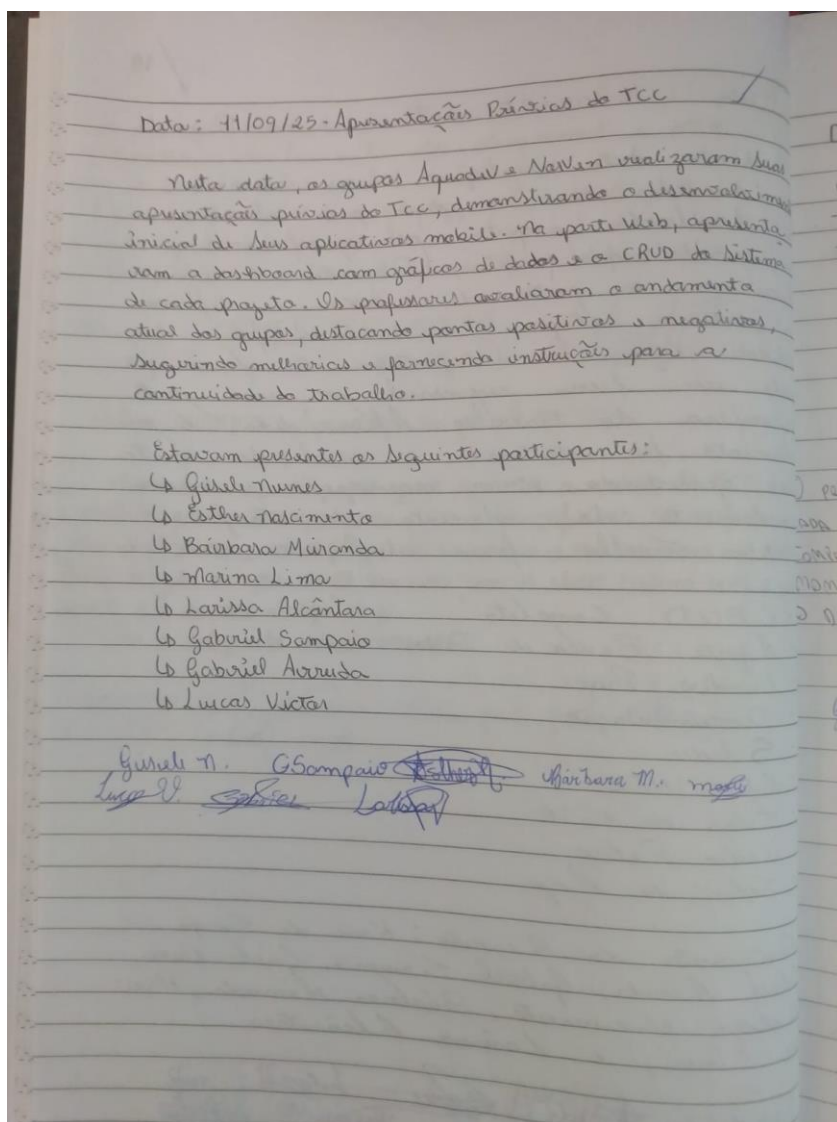 Data: 11/09/25 - Apresentações Prévias do TCC
Nesta data, os grupos Aquadev e NaVen realizaram suas
apresentação prévias do Tcc, demonstrando o desenvolvimento
inicial de seus aplicativos mobile. Na parte Web, apresenta
ram a dashboard com gráficos de dados e o CRUD do sistema
de cada projeto. Os professores avaliaram o andamento
atual dos grupos, destacando pontos positivos e negativos,
sugerindo melhorias e fornecendo instruções para a
continuidade do trabalho.
Estavam presentes os seguintes participantes:
↳ Gisele Nunes
↳ Esther Nascimento
↳ Bárbara Miranda
↳ Marina Lima
↳ Larissa Alcântara
↳ Gabriel Sampaio
↳ Gabriel Arruda
↳ Lucas Victor
Gisele N. GSampaio Bárbara M.
Lucas V. Gabriel